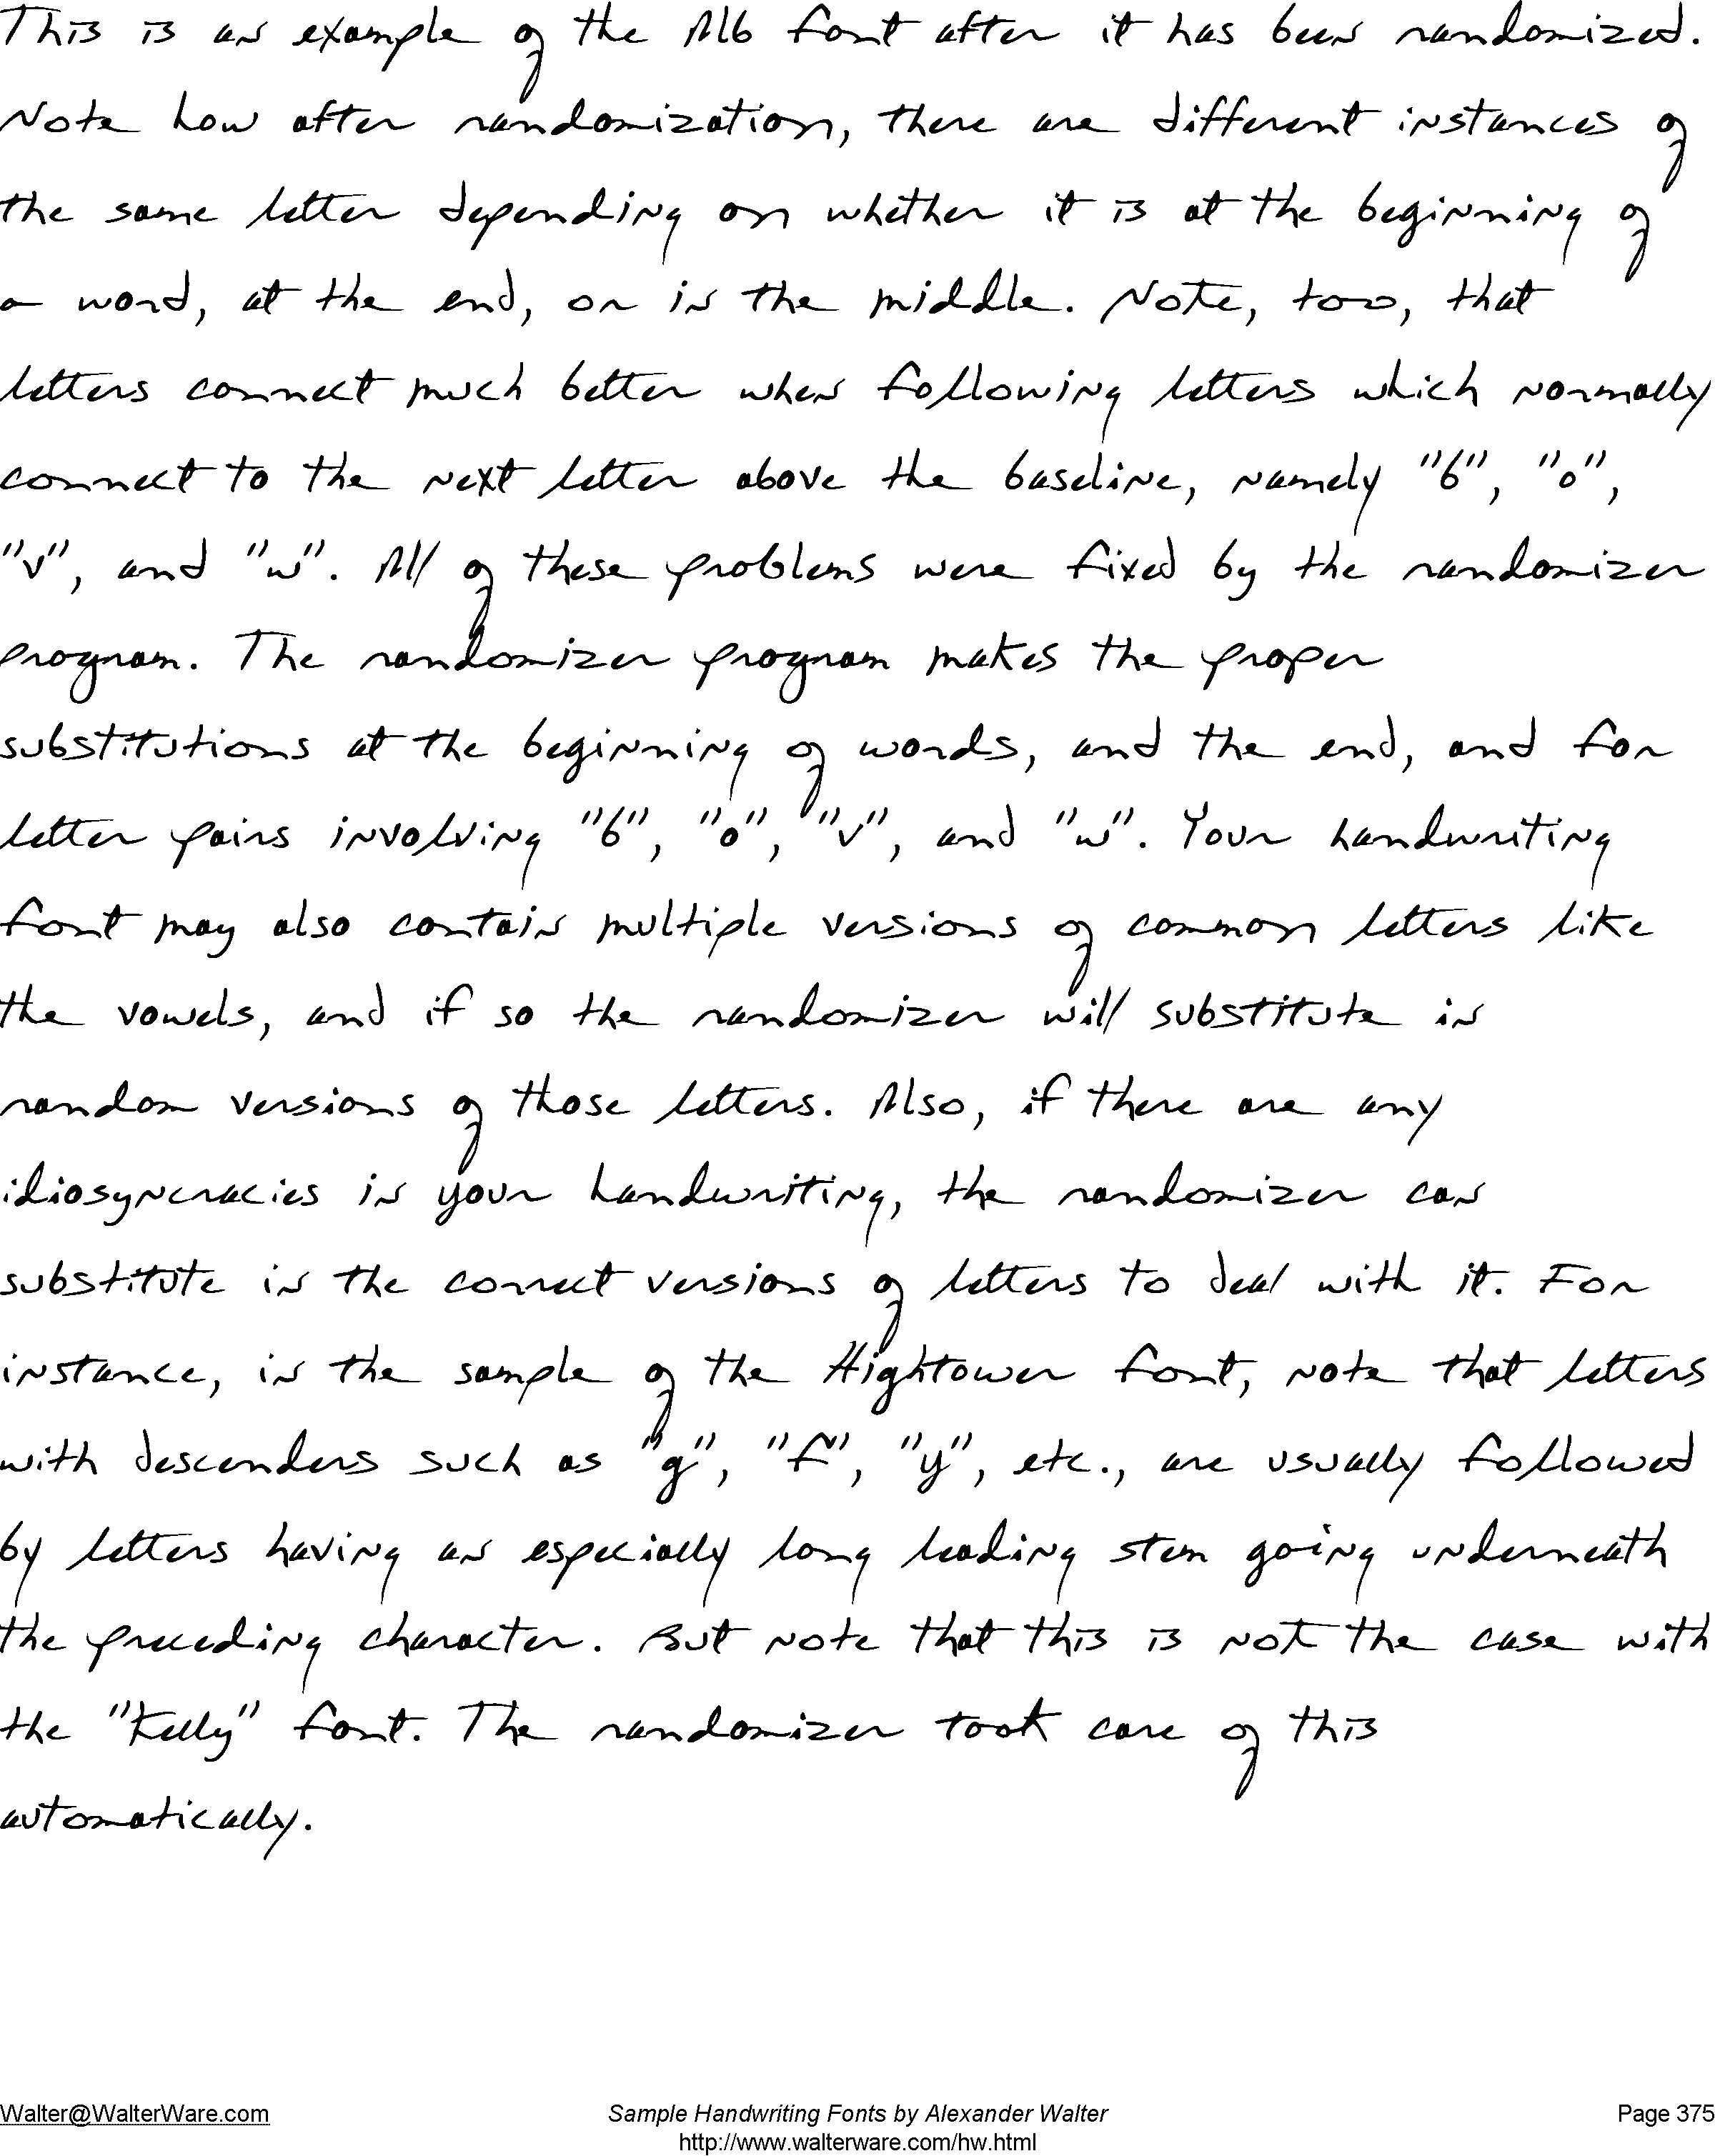 This is an example of the Alb font after it has been randomized.
Note how after randomization, there are different instances of
the same letter depending on whether it is at the beginning of
a word, at the end, or in the middle. Note, too, that
letters connect much better when following letters which normally
connect to the next letter above the baseline, namely "b", "o",
"v", and "w". All of these problems were fixed by the randomizer
program. The randomizer program makes the proper
substitutions at the beginning of words, and the end, and for
letter pairs involving "b", "o", "v", and "w". Your handwriting
font may also contain multiple versions of common letters like
the vowels, and if so the randomizer will substitute in
random versions of those letters. Also, if there are any
idiosyncracies in your handwriting, the randomizer can
substitute in the correct versions of letters to deal with it. For
instance, in the sample of the Hightower font, note that letters
with descenders such as "g", "f", "y", etc., are usually followed
by letters having an especially long leading stem going underneath
the preceding character. But note that this is not the case with
the "Kelly" font. The randomizer took care of this
automatically.
Walter@WalterWare.com Sample Handwriting Fonts by Alexander Walter Page 375
http://www.walterware.com/hw.html